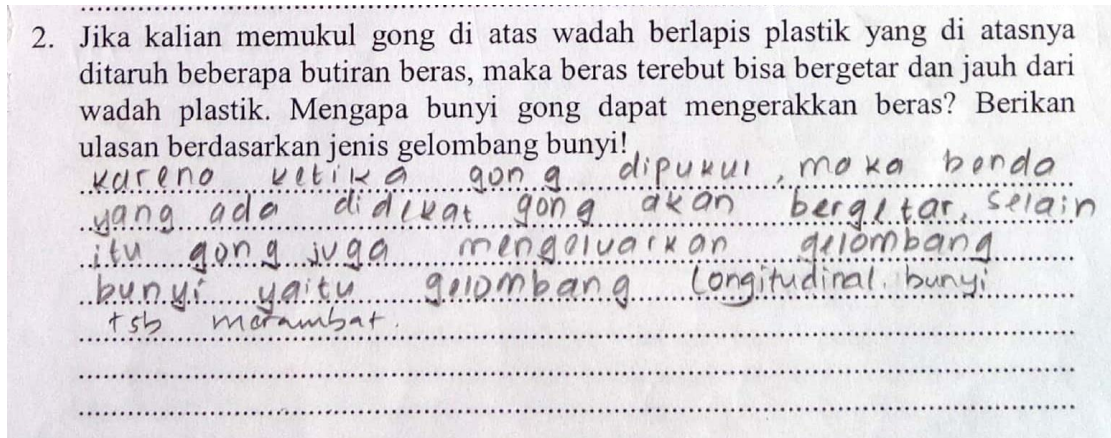 2. Jika kalian memukul gong di atas wadah berlapis plastik yang di atasnya
ditaruh beberapa butiran beras, maka beras terebut bisa bergetar dan jauh dari
wadah plastik. Mengapa bunyi gong dapat mengerakkan beras? Berikan
ulasan berdasarkan jenis gelombang bunyi!
karena ketika gong dipukul, maka benda
yang ada didekat gong akan bergetar, selain
itu gong juga mengeluarkan gelombang
bunyi yaitu gelombang longitudinal. bunyi
tsb merambat.